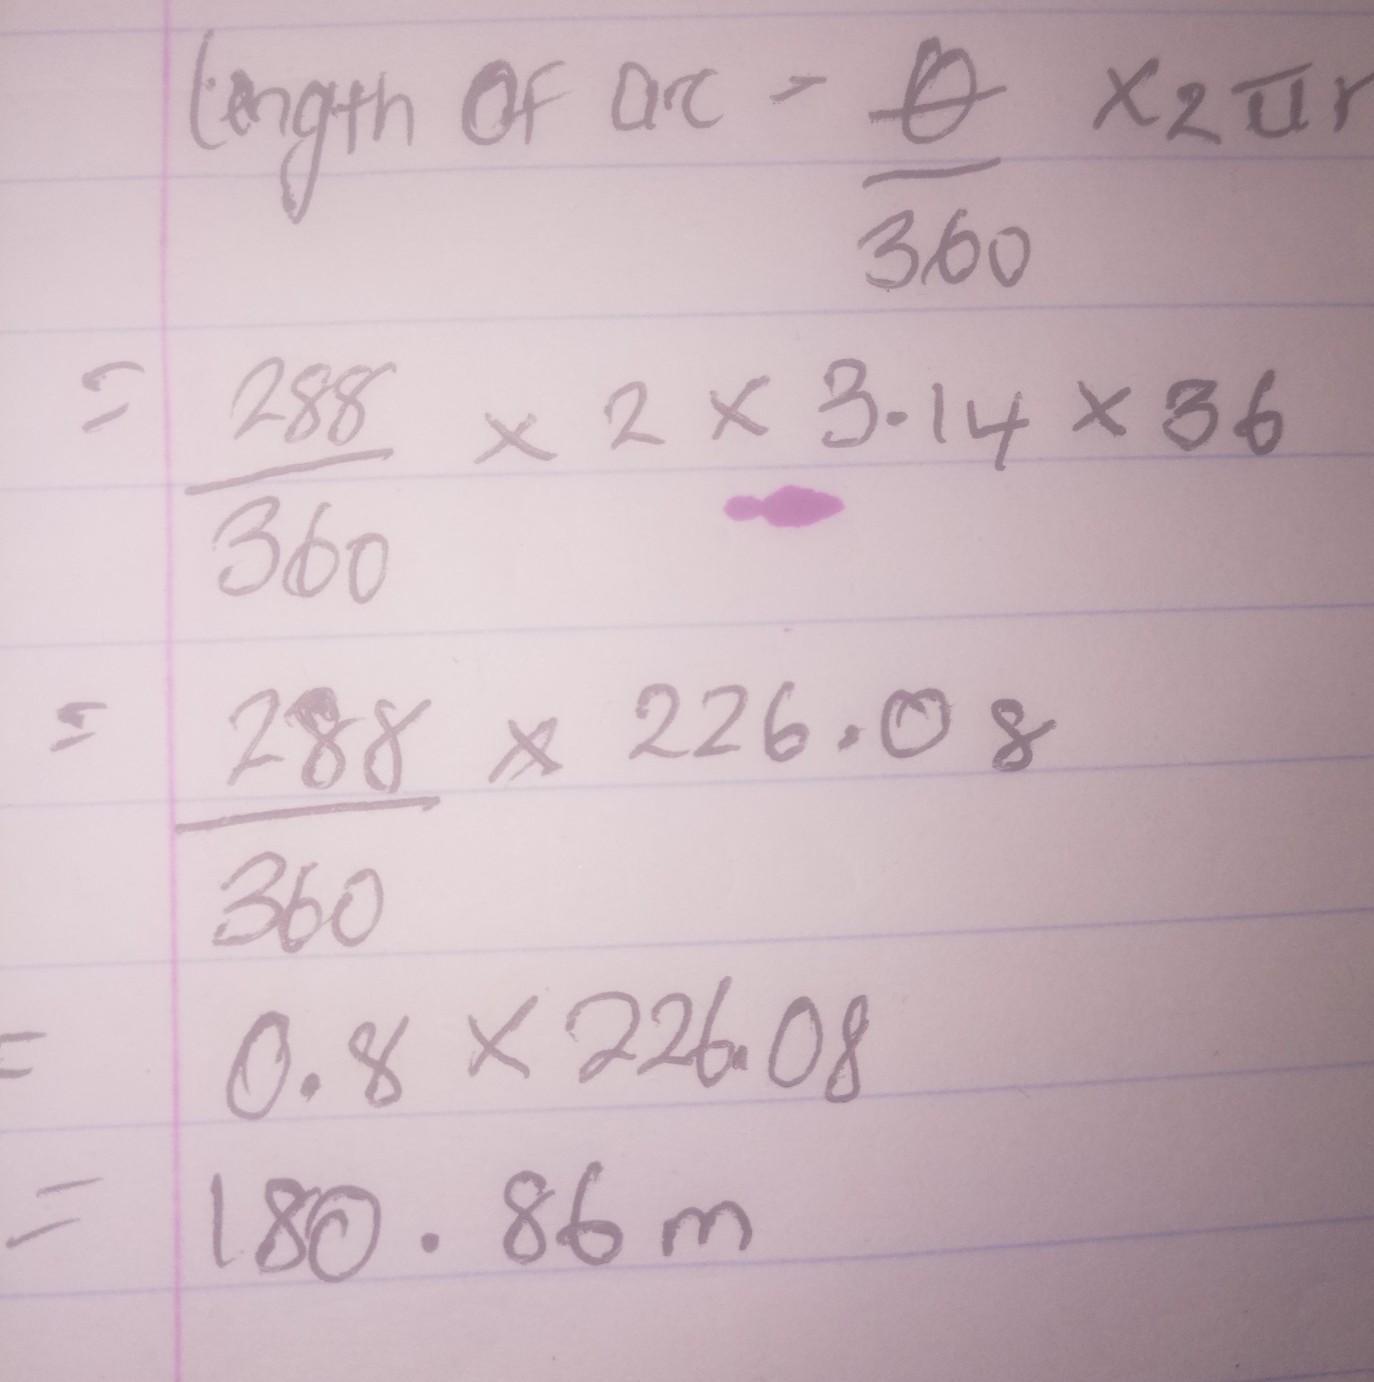 Length of arc = θ/360 × 2πr
= 288/360 × 2 × 3.14 × 36
= 288/360 × 226.08
= 0.8 × 226.08
= 180.86 m